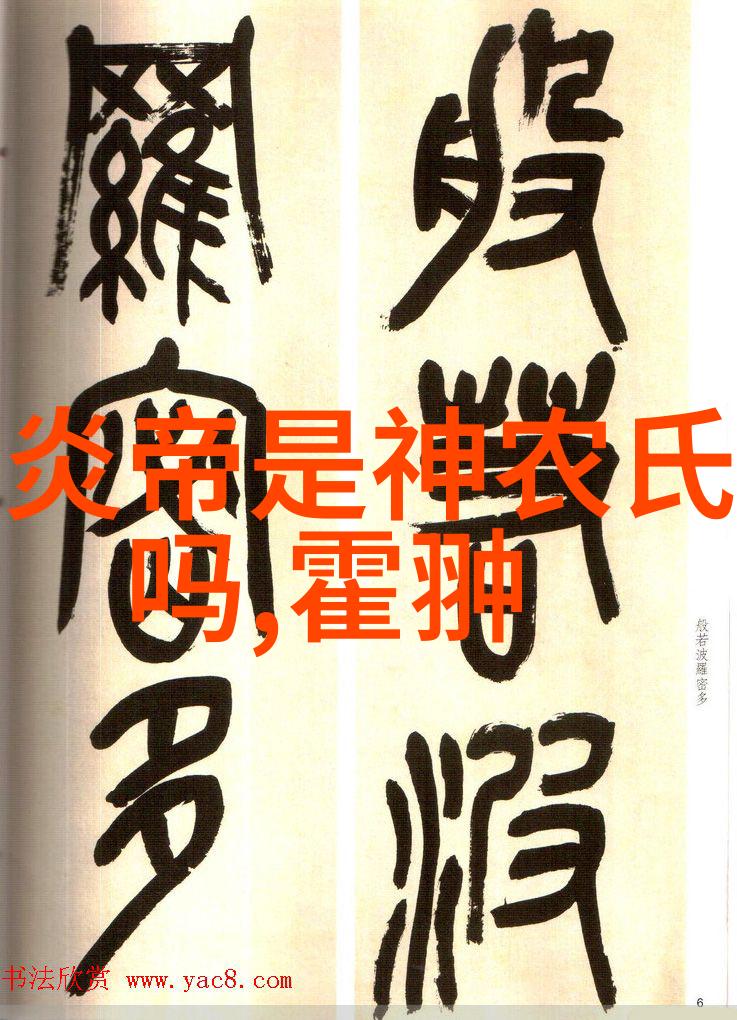 般若波
羅密多
炎帝是神农氏
吗,霍翀
般若波羅密多
书法欣赏 www.yac8.com
6